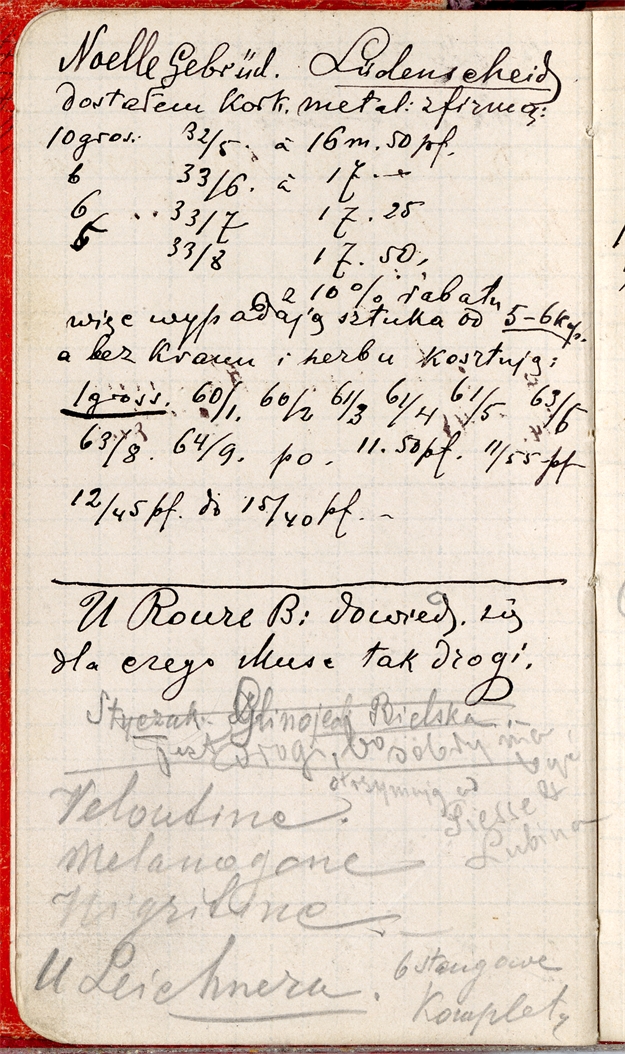 Noelle Gebrüd. Lüdenscheid
dostałem Kork. metal: z firmą:
10 gros: 32/5. à 16 m. 50 pf.
6 33/6. à 17.-
6 .. 33/7 17.25
6 33/8 17.50,
z 10% rabatu
więc wypadają sztuka od 5-6 kp.
a bez kranu i herbu kosztują:
1 gross. 60/1. 60/2 61/3 61/4 61/5 63/6
63/8. 64/9. po. 11.50 pf. 11/55 pf
12/45 pf. do 15/40 pf. -
U Roure B: dowiedz. się
dla czego Musc tak drogi.
Bielska
jest drogi, bo
otrzymują od
Piesse &
Lubina
Veloutine.
Melanogene
Nigritine
U Leichnera.
6 stangowe
Komplety